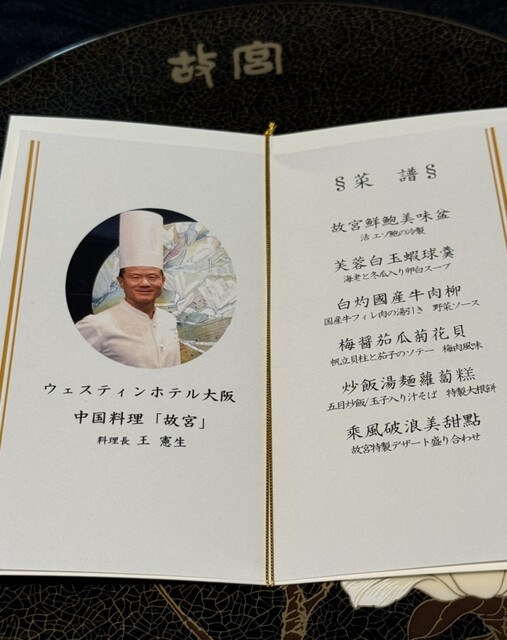 故宮
ウェスティンホテル大阪
中国料理「故宮」
料理長 王 憲生
§菜 譜§
故宮鮮鮑美味盆
活エゾ鮑の冷製
芙蓉白玉蝦球羹
海老と冬瓜入り卵白スープ
白灼國産牛肉柳
国産牛フィレ肉の湯引き 野菜ソース
梅醬茄瓜菊花貝
帆立貝柱と茄子のソテー 梅肉風味
炒飯湯麵蘿蔔糕
五目炒飯/玉子入り汁そば 特製大根餅
乘風破浪美甜點
故宮特製デザート盛り合わせ